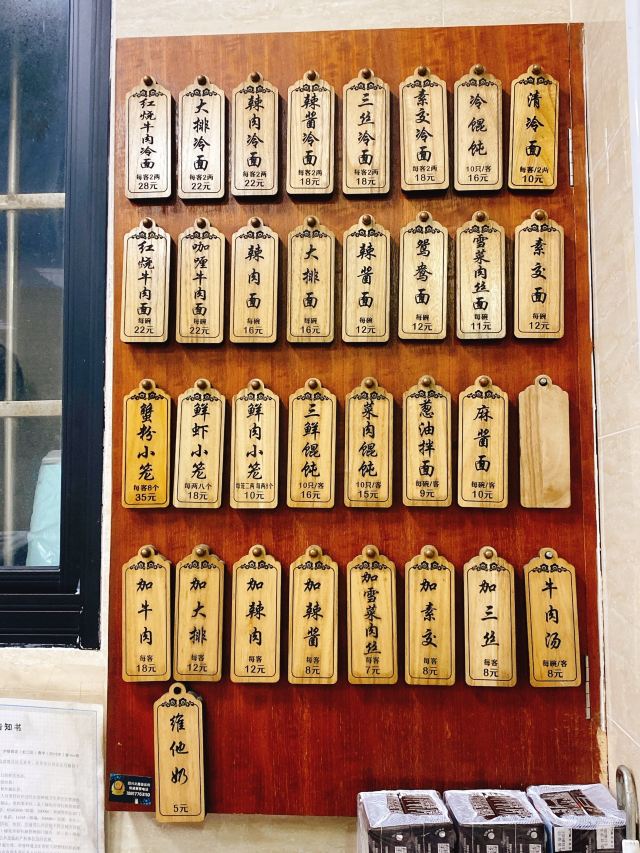 红烧牛肉冷面
每客2两
28元
大排冷面
每客2两
22元
辣肉冷面
每客2两
22元
辣酱冷面
每客2两
18元
三丝冷面
每客2两
18元
素交冷面
每客2两
18元
冷馄饨
10只/客
16元
清冷面
每客/2两
10元
红烧牛肉面
每碗
22元
咖喱牛肉面
每碗
22元
辣肉面
每碗
16元
大排面
每碗
16元
辣酱面
每碗
12元
鸳鸯面
每碗
12元
雪菜肉丝面
每碗
11元
素交面
每碗
12元
蟹粉小笼
每客8个
35元
鲜虾小笼
每两八个
18元
鲜肉小笼
10元
三鲜馄饨
10只/客
16元
菜肉馄饨
10只/客
15元
葱油拌面
每碗/客
9元
麻酱面
每碗/客
10元
加牛肉
每客
18元
加大排
每客
12元
加辣肉
每客
12元
加辣酱
每客
8元
加雪菜肉丝
每客
7元
加素交
每客
8元
加三丝
每客
8元
牛肉汤
每碗/客
8元
维他奶
5元
知书